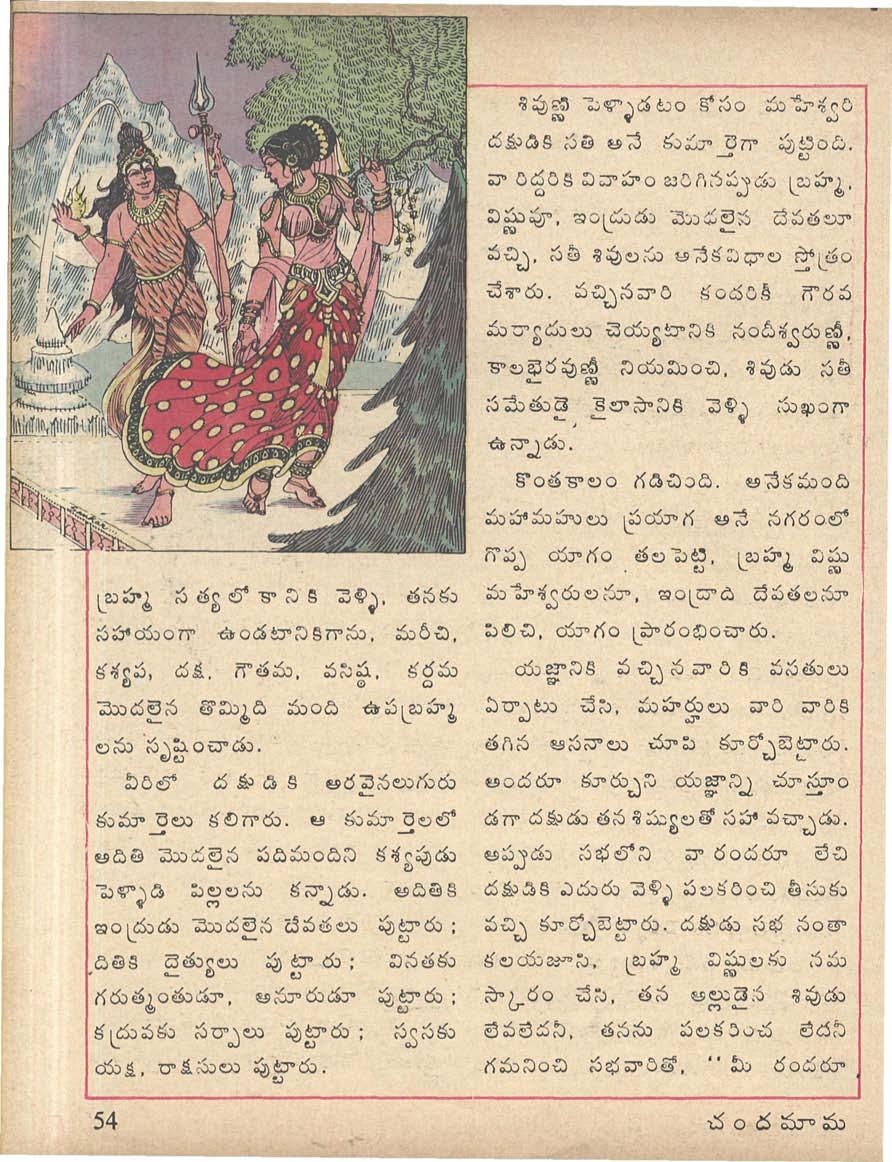 బ్రహ్మ సత్యలోకానికి వెళ్ళి, తనకు
సహాయంగా ఉండటానికిగాను, మరీచి,
కశ్యప, దక్ష, గౌతమ, వసిష్ఠ, కర్దమ
మొదలైన తొమ్మిది మంది ఉపబ్రహ్మ
లను సృష్టించాడు.
వీరిలో దక్షుడికి అరవైనలుగురు
కుమార్తెలు కలిగారు. ఆ కుమార్తెలలో
అదితి మొదలైన పదిమందిని కశ్యపుడు
పెళ్ళాడి పిల్లలను కన్నాడు. అదితికి
ఇంద్రుడు మొదలైన దేవతలు పుట్టారు;
దితికి దైత్యులు పుట్టారు; వినతకు
గరుత్మంతుడూ, అనూరుడూ పుట్టారు;
కద్రువకు సర్పాలు పుట్టారు; స్వసకు
యక్ష, రాక్షసులు పుట్టారు.
శివుణ్ణి పెళ్ళాడటం కోసం మహేశ్వరి
దక్షుడికి సతి అనే కుమార్తెగా పుట్టింది.
వారిద్దరికి వివాహం జరిగినప్పుడు బ్రహ్మ,
విష్ణువూ, ఇంద్రుడు మొదలైన దేవతలూ
వచ్చి, సతీ శివులను అనేకవిధాల స్తోత్రం
చేశారు. వచ్చినవారి కందరికీ గౌరవ
మర్యాదులు చెయ్యటానికి నందీశ్వరుణ్ణీ,
కాలభైరవుణ్ణీ నియమించి, శివుడు సతీ
సమేతుడై కైలాసానికి వెళ్ళి సుఖంగా
ఉన్నాడు.
కొంతకాలం గడిచింది. అనేకమంది
మహామహులు ప్రయాగ అనే నగరంలో
గొప్ప యాగం తలపెట్టి, బ్రహ్మ విష్ణు
మహేశ్వరులనూ, ఇంద్రాది దేవతలనూ
పిలిచి, యాగం ప్రారంభించారు.
యజ్ఞానికి వచ్చినవారికి వసతులు
ఏర్పాటు చేసి, మహర్షులు వారి వారికి
తగిన ఆసనాలు చూపి కూర్చోబెట్టారు.
అందరూ కూర్చుని యజ్ఞాన్ని చూస్తూం
డగా దక్షుడు తన శిష్యులతో సహా వచ్చాడు.
అప్పుడు సభలోని వారందరూ లేచి
దక్షుడికి ఎదురు వెళ్ళి పలకరించి తీసుకు
వచ్చి కూర్చోబెట్టారు. దక్షుడు సభ నంతా
కలయజూసి, బ్రహ్మ విష్ణులకు నమ
స్కారం చేసి, తన అల్లుడైన శివుడు
లేవలేదనీ, తనను పలకరించ లేదనీ
గమనించి సభవారితో, “మీ రందరూ
54
చందమామ